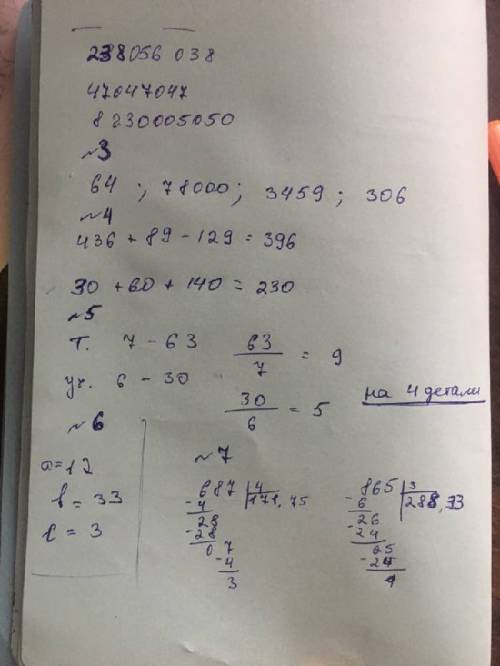 238056 038
47047047
8230005050
№3
64 ; 78000; 3459; 306
№4
436 + 89 - 129 = 396
30 + 60 + 140 = 230
№5
т. 7 - 63 63/7 = 9
уч. 6 - 30 30/6 = 5 на 4 детали
№6
a = 12
b = 33
c = 3
№7
687 | 4
- 4 171,75
28
- 28
0 7
- 4
3
865 | 3
- 6 288,33
26
- 24
25
- 24
1